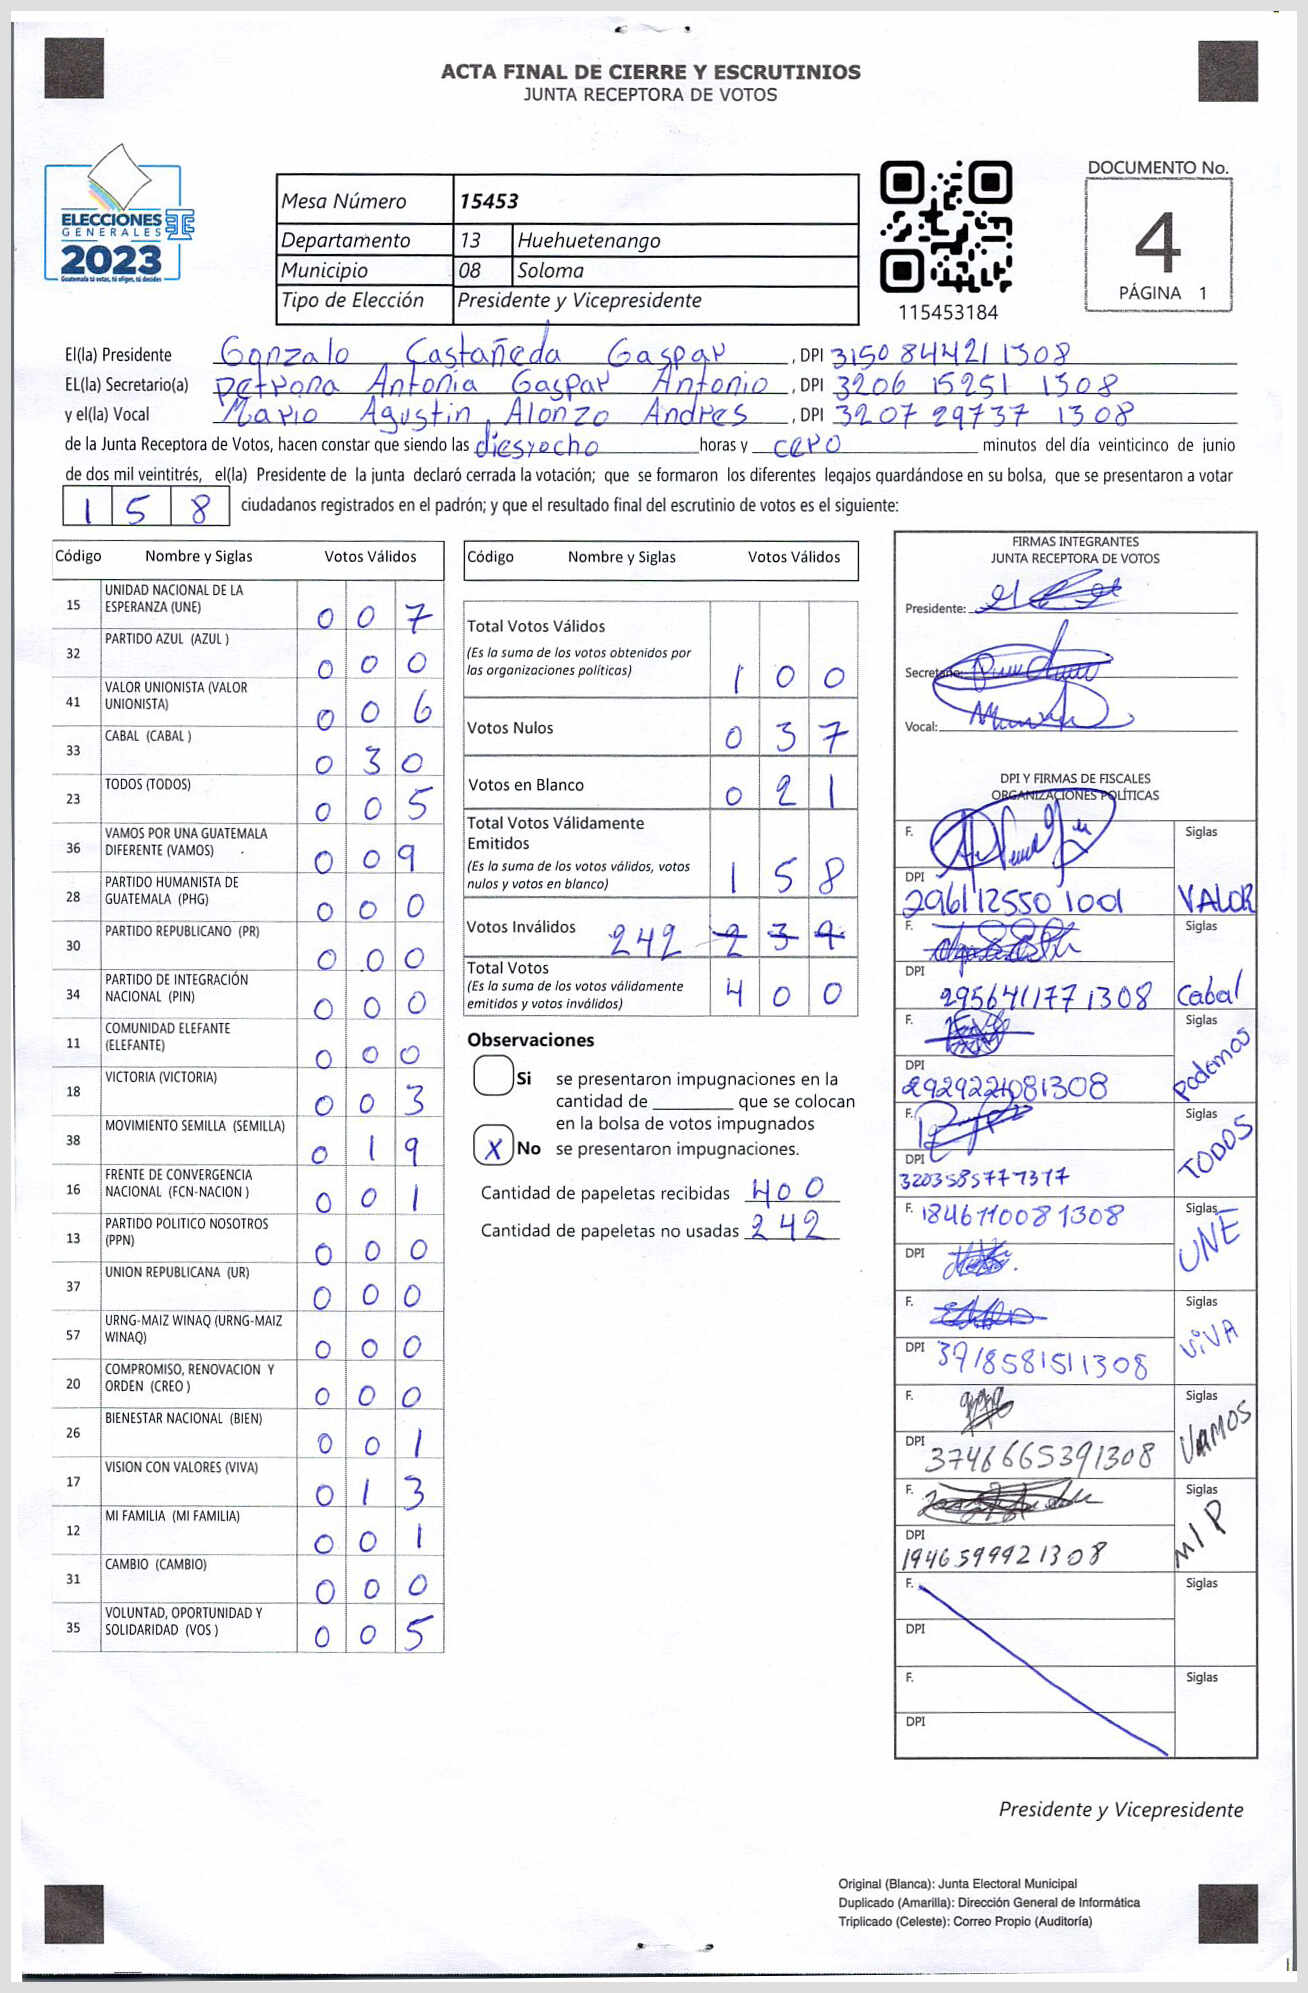 ACTA FINAL DE CIERRE Y ESCRUTINIOS
JUNTA RECEPTORA DE VOTOS
ELECCIONES
GENERALES
2023
Guatemala tú votas, tú eliges, tú decides
Mesa Número 15453
Departamento 13 Huehuetenango
Municipio 08 Soloma
Tipo de Elección Presidente y Vicepresidente
115453184
DOCUMENTO No.
4
PÁGINA 1
El(la) Presidente Gonzalo Castañeda Gaspar, DPI 3150 84421 1308
EL(la) Secretario(a) Petrona Antonia Gaspar Antonio, DPI 3206 15251 1308
y el(la) Vocal Mario Agustin Alonzo Andres, DPI 3207 29737 1308
de la Junta Receptora de Votos, hacen constar que siendo las diesyocho horas y cero minutos del día veinticinco de junio
de dos mil veintitrés, el(la) Presidente de la junta declaró cerrada la votación; que se formaron los diferentes legajos guardándose en su bolsa, que se presentaron a votar
1 5 8 ciudadanos registrados en el padrón; y que el resultado final del escrutinio de votos es el siguiente:
Código Nombre y Siglas Votos Válidos
15 UNIDAD NACIONAL DE LA ESPERANZA (UNE) 0 0 7
32 PARTIDO AZUL (AZUL ) 0 0 0
41 VALOR UNIONISTA (VALOR UNIONISTA) 0 0 6
33 CABAL (CABAL ) 0 3 0
23 TODOS (TODOS) 0 0 5
36 VAMOS POR UNA GUATEMALA DIFERENTE (VAMOS) 0 0 9
28 PARTIDO HUMANISTA DE GUATEMALA (PHG) 0 0 0
30 PARTIDO REPUBLICANO (PR) 0 0 0
34 PARTIDO DE INTEGRACIÓN NACIONAL (PIN) 0 0 0
11 COMUNIDAD ELEFANTE (ELEFANTE) 0 0 0
18 VICTORIA (VICTORIA) 0 0 3
38 MOVIMIENTO SEMILLA (SEMILLA) 0 1 9
16 FRENTE DE CONVERGENCIA NACIONAL (FCN-NACION ) 0 0 1
13 PARTIDO POLITICO NOSOTROS (PPN) 0 0 0
37 UNION REPUBLICANA (UR) 0 0 0
57 URNG-MAIZ WINAQ (URNG-MAIZ WINAQ) 0 0 0
20 COMPROMISO, RENOVACION Y ORDEN (CREO ) 0 0 0
26 BIENESTAR NACIONAL (BIEN) 0 0 1
17 VISION CON VALORES (VIVA) 0 1 3
12 MI FAMILIA (MI FAMILIA) 0 0 1
31 CAMBIO (CAMBIO) 0 0 0
35 VOLUNTAD, OPORTUNIDAD Y SOLIDARIDAD (VOS ) 0 0 5
Código Nombre y Siglas Votos Válidos
Total Votos Válidos
(Es la suma de los votos obtenidos por
las organizaciones políticas) 1 0 0
Votos Nulos 0 3 7
Votos en Blanco 0 2 1
Total Votos Válidamente
Emitidos
(Es la suma de los votos válidos, votos
nulos y votos en blanco) 1 5 8
Votos Inválidos 242 2 3 9
Total Votos
(Es la suma de los votos válidamente
emitidos y votos inválidos) 4 0 0
Observaciones
Si se presentaron impugnaciones en la
cantidad de ________ que se colocan
en la bolsa de votos impugnados
X No se presentaron impugnaciones.
Cantidad de papeletas recibidas 400
Cantidad de papeletas no usadas 242
FIRMAS INTEGRANTES
JUNTA RECEPTORA DE VOTOS
Presidente:
Secretario:
Vocal:
DPI Y FIRMAS DE FISCALES
ORGANIZACIONES POLÍTICAS
F. Siglas
DPI 296112550 1001 VALOR
F. Siglas
DPI 295641177 1308 Cabal
F. Siglas
DPI 2929221081308 Podemos
F. Siglas
DPI 3203585771317 TODOS
F. 1846110081308 Siglas
DPI UNE
F. Siglas
DPI 3718581511308 ViVA
F. Siglas
DPI 3746665391308 VAMOS
F. Siglas
DPI 1946599921308 MLP
F. Siglas
DPI
F. Siglas
DPI
Presidente y Vicepresidente
Original (Blanca): Junta Electoral Municipal
Duplicado (Amarilla): Dirección General de Informática
Triplicado (Celeste): Correo Propio (Auditoría)